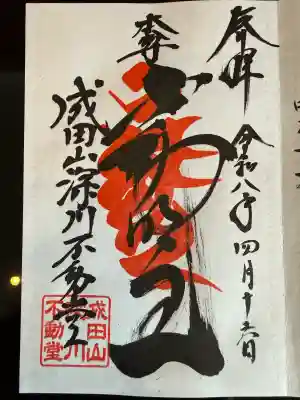 奉拝
令和八年四月十六日
不動明王
成田山深川不動堂
成田山
深川
不動堂